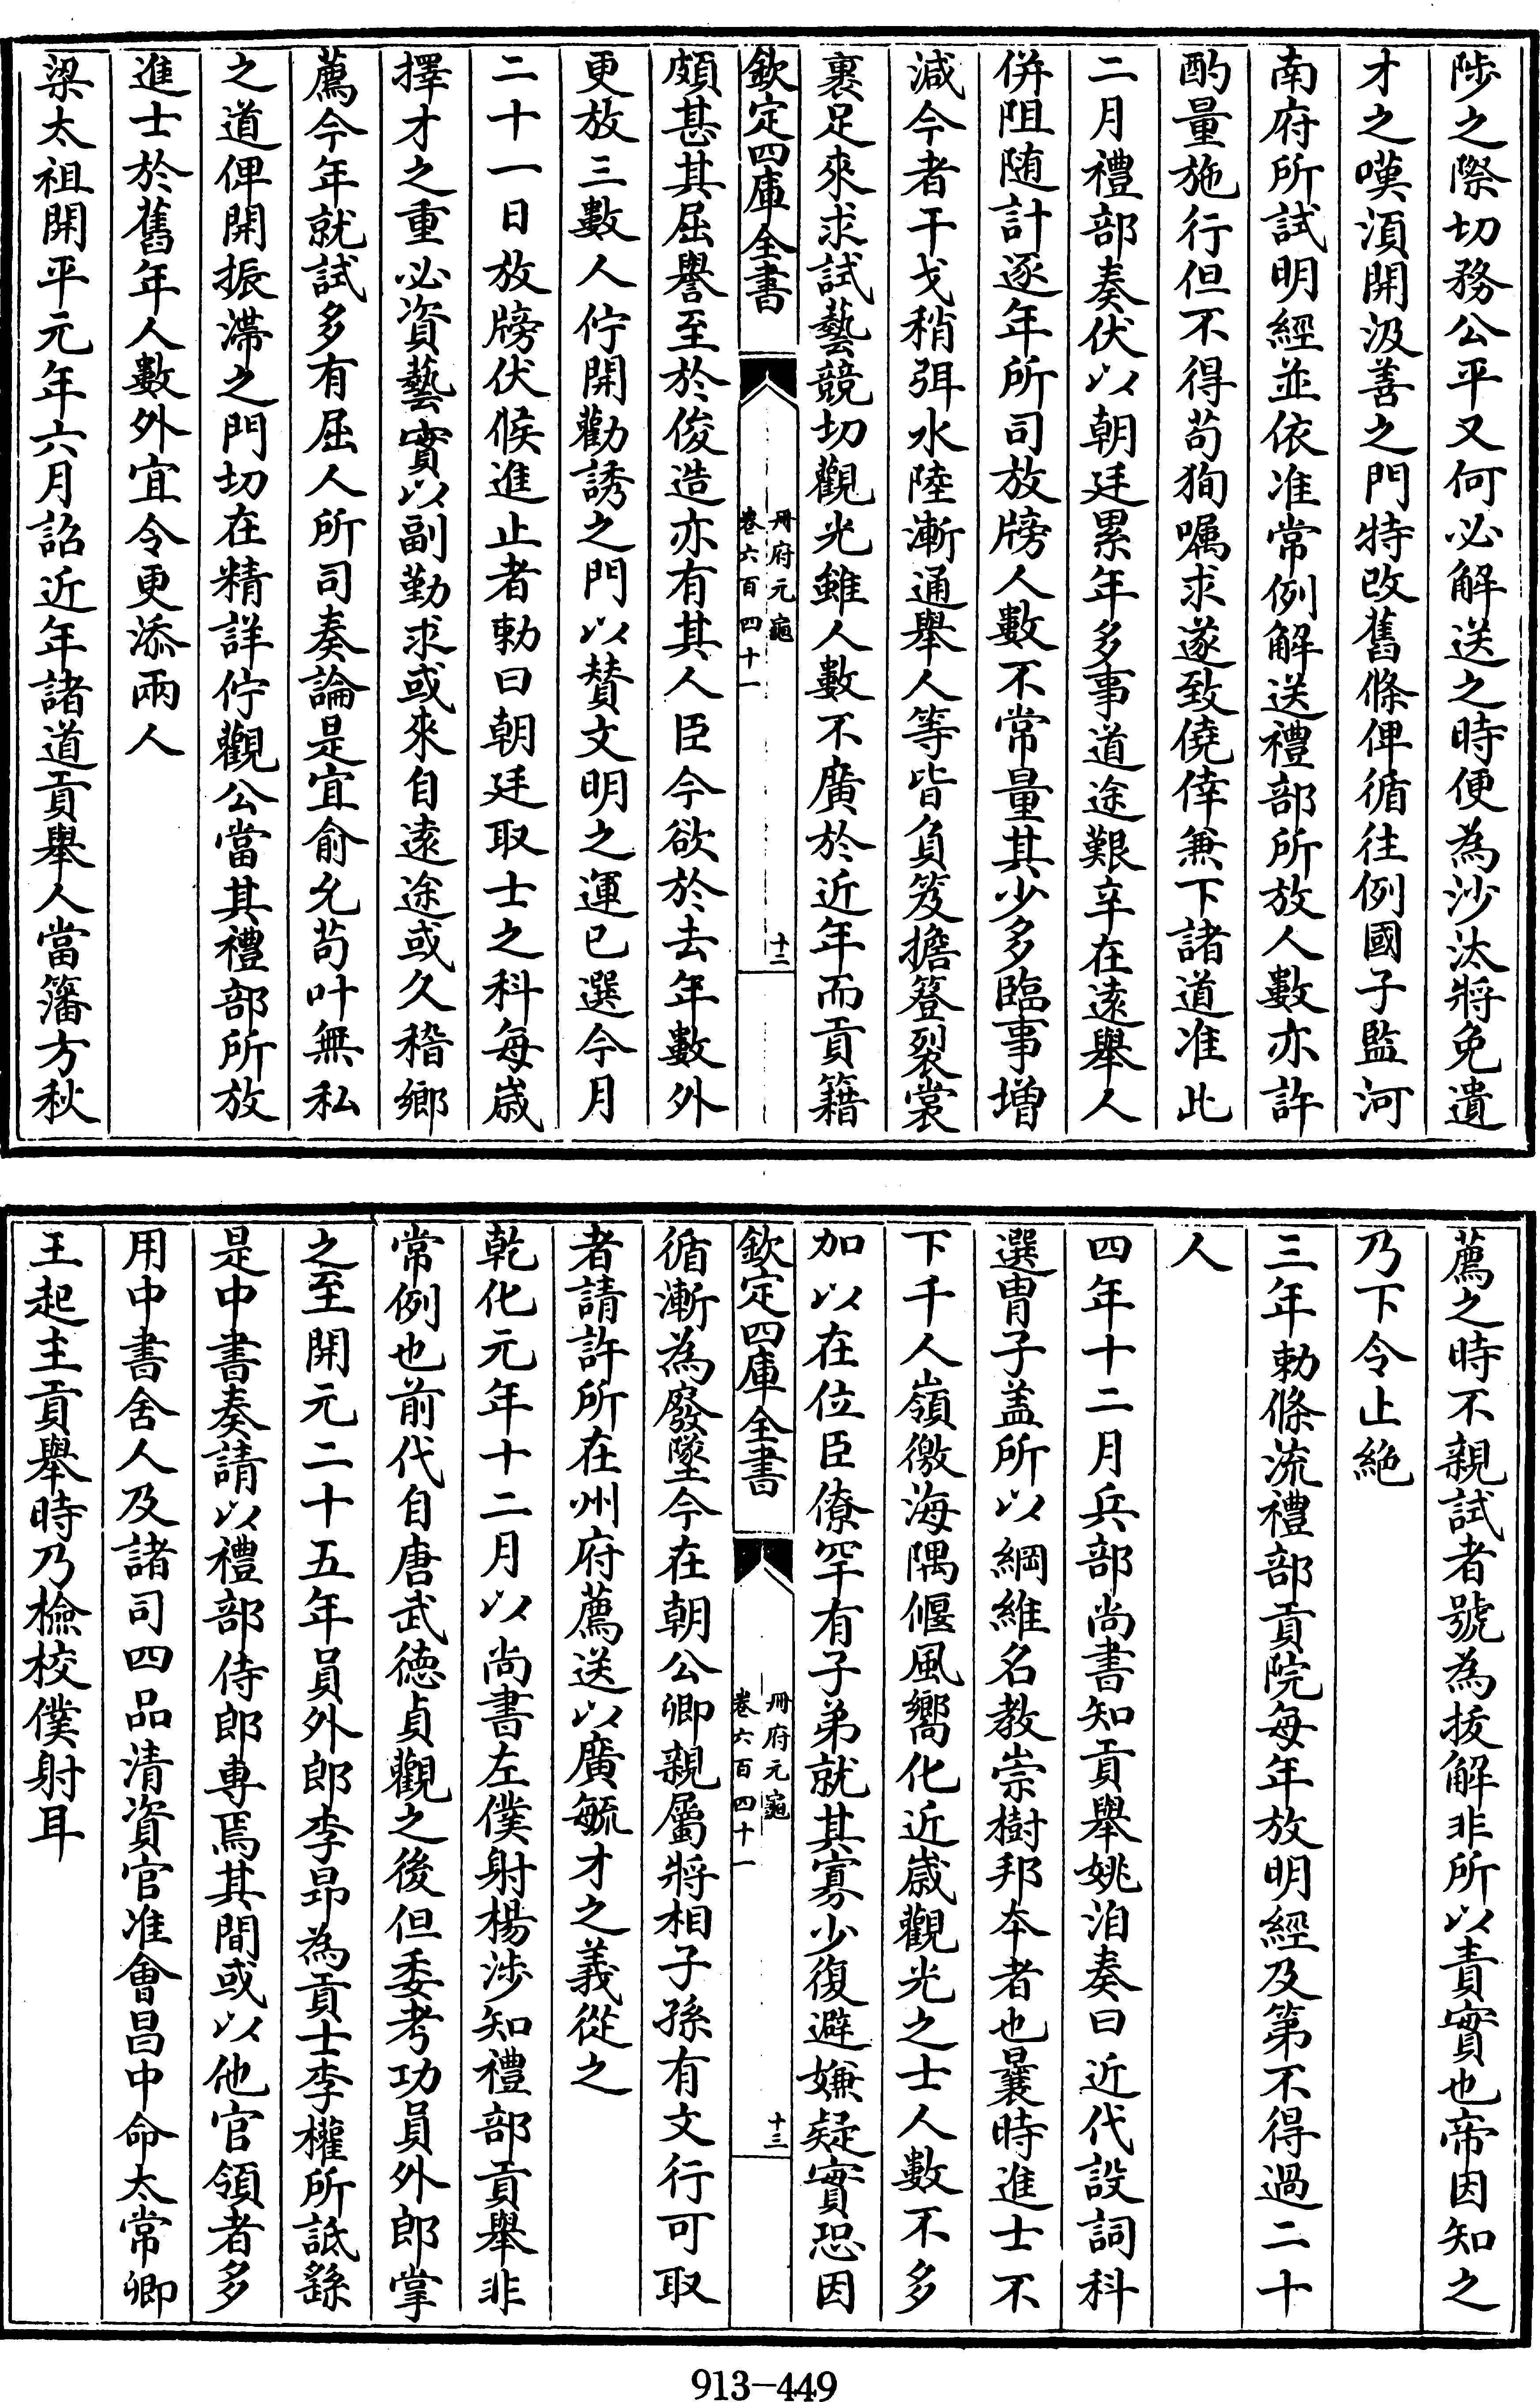 陟之際切務公平又何必解送之時便為沙汰將免遺
才之嘆湏開汲善之門特改舊條俾循往例國子監河
南府所試明經並依准常例解送禮部所放人數亦許
酌量施行但不得苟狥嘱求遂致僥倖兼下諸道准此
二月禮部奏伏以朝廷累年多事道途艱辛在遠舉人
併阻随計逐年所司放牓人數不常量其少多臨事增
減今者干戈稍弭水陸漸通舉人等皆負笈擔簦裂裳
裹足來求試藝競切觀光雖人數不廣於近年而貢籍
欽定四庫全書
冊府元龜
卷六百四十一
十二
頗甚其屈譽至於俊造亦有其人臣今欲於去年數外
更放三數人佇開勸誘之門以賛文明之運已選今月
二十一日放牓伏候進止者勅曰朝廷取士之科每嵗
擇才之重必資藝實以副勤求或來自遠途或久稽鄉
薦今年就試多有屈人所司奏論是宜俞允苟叶無私
之道俾開振滯之門切在精詳佇觀公當其禮部所放
進士於舊年人數外宜令更添兩人
梁太祖開平元年六月詔近年諸道貢舉人當籓方秋
薦之時不親試者號為拔解非所以責實也帝因知之
乃下令止絶
三年勅條流禮部貢院每年放明經及第不得過二十
人
四年十二月兵部尚書知貢舉姚洎奏曰近代設詞科
選胄子盖所以綱維名教崇樹邦本者也曩時進士不
下千人嶺徼海隅偃風嚮化近嵗觀光之士人數不多
加以在位臣僚罕有子弟就其寡少復避嫌疑實恐因
欽定四庫全書
冊府元龜
卷六百四十一
十三
循漸為廢墜今在朝公卿親屬將相子孫有文行可取
者請許所在州府薦送以廣毓才之義從之
乾化元年十二月以尚書左僕射楊涉知禮部貢舉非
常例也前代自唐武徳貞觀之後但委考功員外郎掌
之至開元二十五年員外郎李昂為貢士李權所詆繇
是中書奏請以禮部侍郎専焉其間或以他官領者多
用中書舍人及諸司四品清資官准會昌中命太常卿
王起主貢舉時乃檢校僕射耳
913-449